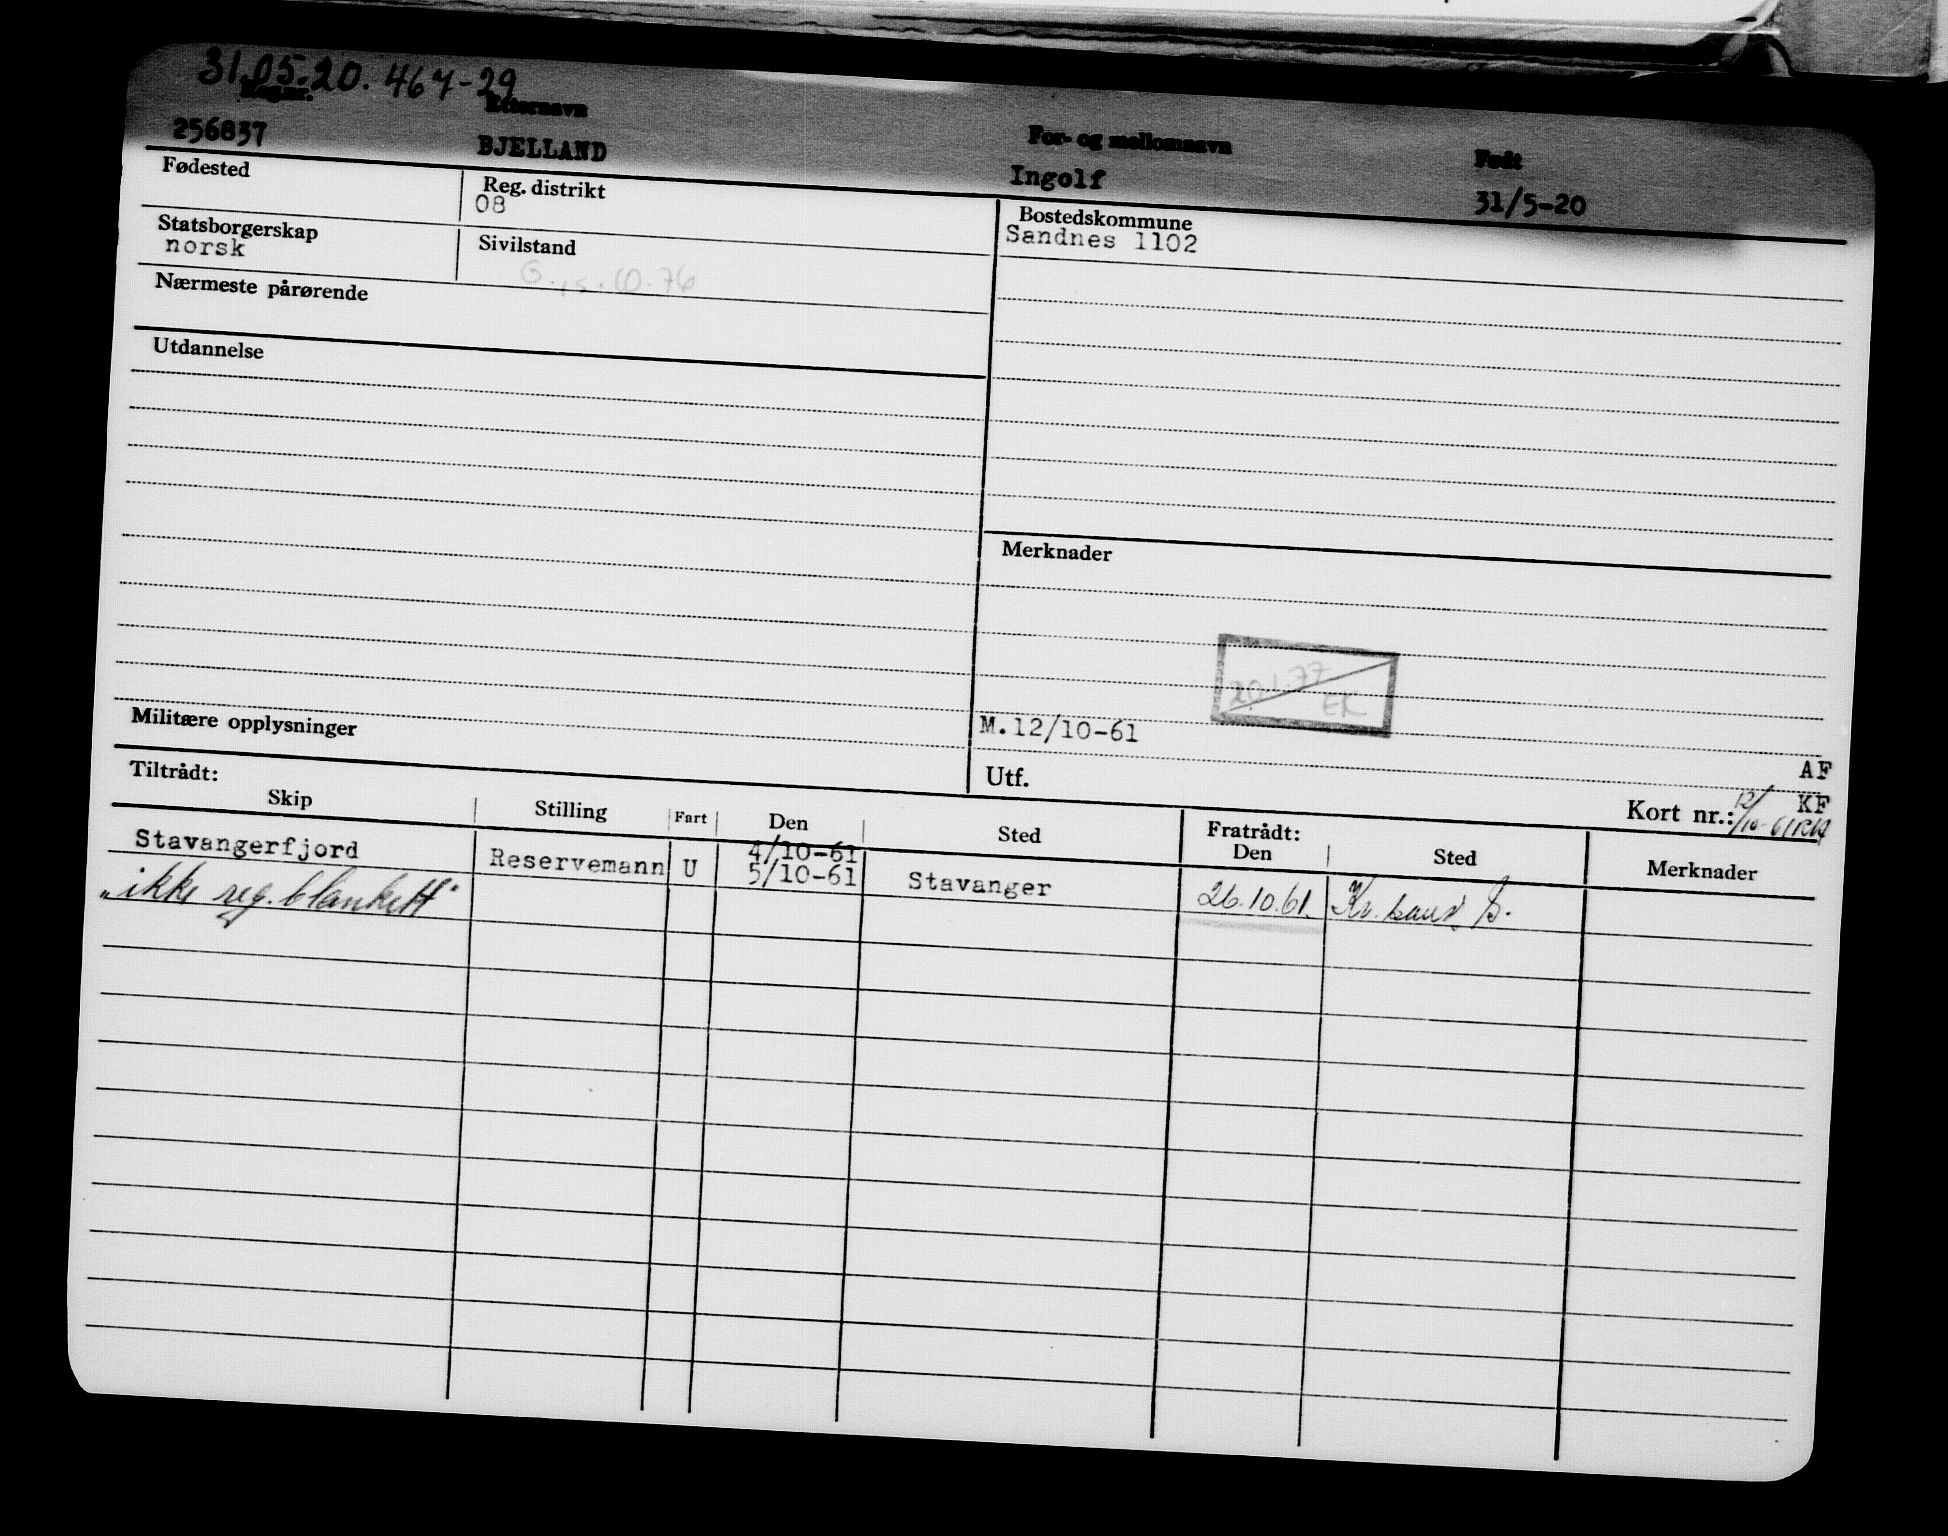 31.05.20. 467-29
Reg.nr. Etternavn For- og mellomnavn Født
256837 BJELLAND Ingolf 31/5-20
Fødested Reg. distrikt Bostedskommune
08 Sandnes 1102
Statsborgerskap Sivilstand
norsk G. 15.10.76
Nærmeste pårørende
Utdannelse
Merknader
20.1.77
EK
Militære opplysninger M.12/10-61
AF
Tiltrådt: Utf. Kort nr.: KF
12/10-61
Skip Stilling Fart Den Sted Fratrådt: Den Sted Merknader
4/10-61
Stavangerfjord Reservemann U 5/10-61 Stavanger 26.10.61. Kr.sand S.
"ikke reg. blankett"